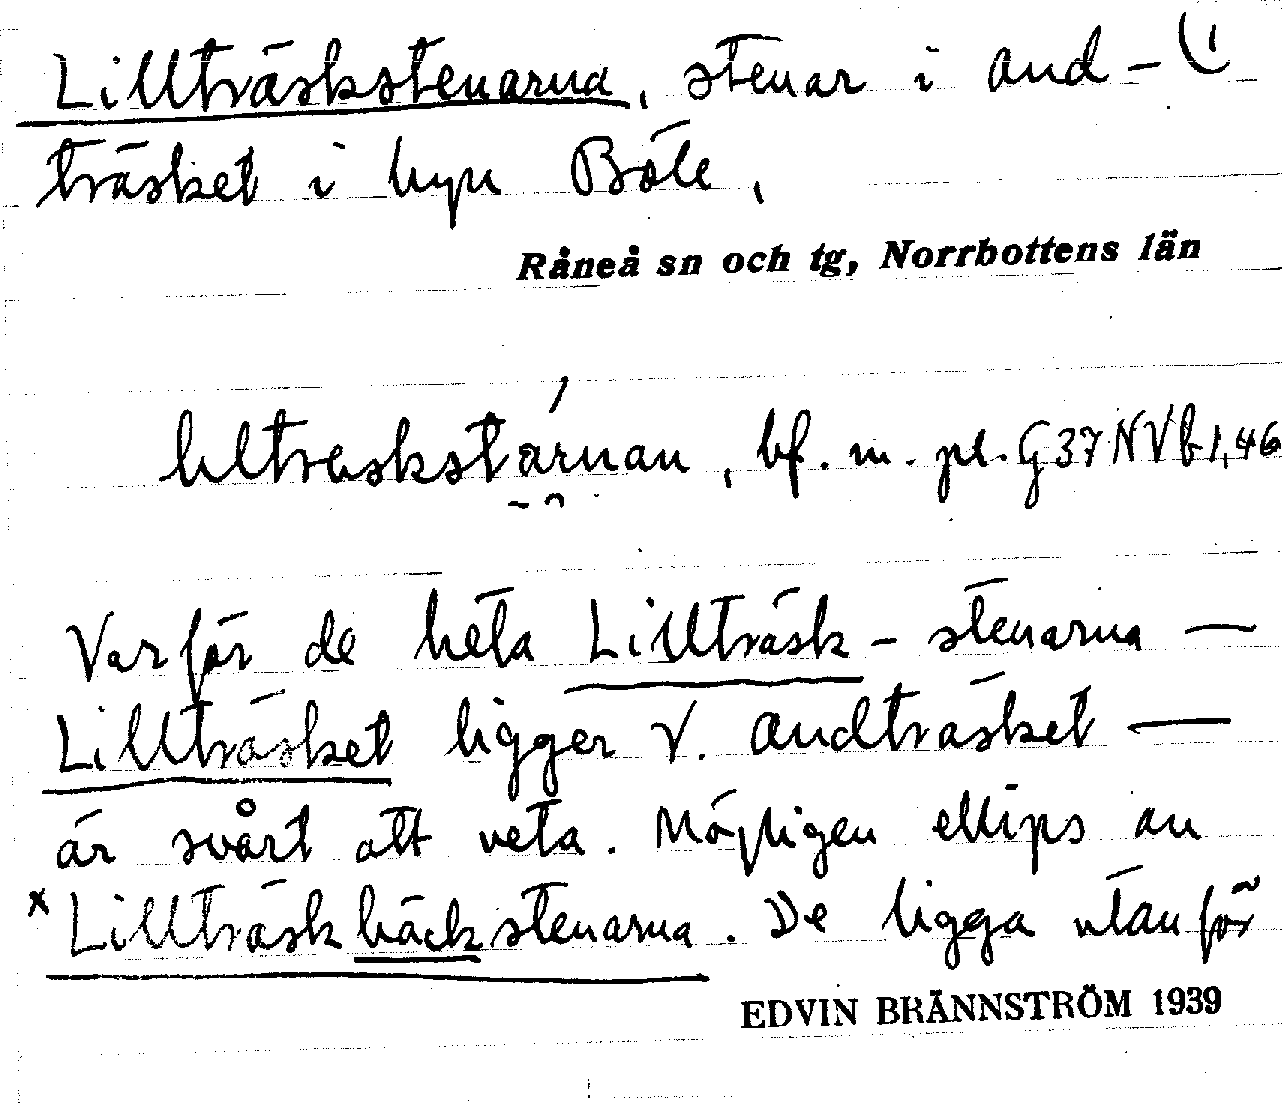 Lillträskstenarna, stenar i And- (1
träsket i byn Böle,
Råneå sn och tg, Norrbottens län
liltreskstárnan, bf. m. pl. G37NVb1,46
Varför de heta Lillträsk-stenarna —
Lillträsket ligger V. Andträsket —
är svårt att veta. Möjligen ellips av
*Lillträskbäckstenarna. De ligga utanför
EDVIN BRÄNNSTRÖM 1939